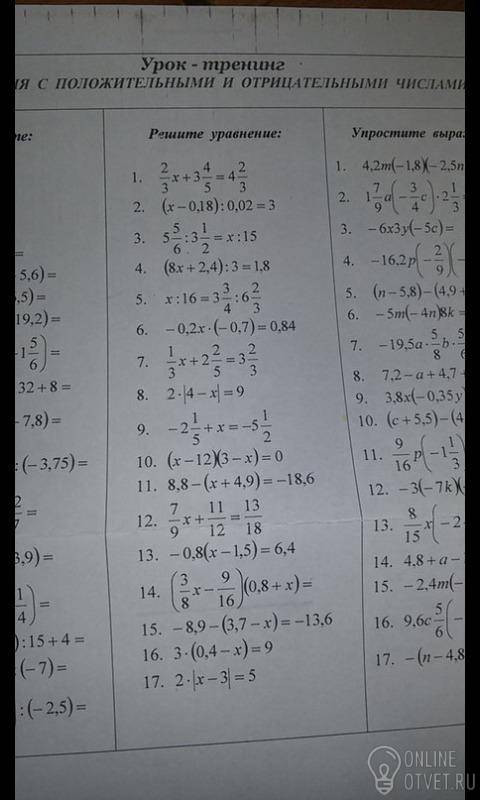 Урок - тренинг
ИЯ С ПОЛОЖИТЕЛЬНЫМИ И ОТРИЦАТЕЛЬНЫМИ ЧИСЛАМИ
те:
=
5,6)=
6,5)=
19,2)=
-1 5/6)=
32+8=
-7,8)=
:(-3,75)=
2/7=
3,9)=
1/4)=
):15+4=
:(-7)=
:(-2,5)=
Решите уравнение:
1. 2/3 x+3 4/5=4 2/3
2. (x-0,18):0,02=3
3. 5 5/6:3 1/2=x:15
4. (8x+2,4):3=1,8
5. x:16=3 3/4:6 2/3
6. -0,2x·(-0,7)=0,84
7. 1/3 x+2 2/5=3 2/3
8. 2·|4-x|=9
9. -2 1/5+x=-5 1/2
10. (x-12)(3-x)=0
11. 8,8-(x+4,9)=-18,6
12. 7/9 x+11/12=13/18
13. -0,8(x-1,5)=6,4
14. (3/8 x-9/16)(0,8+x)=
15. -8,9-(3,7-x)=-13,6
16. 3·(0,4-x)=9
17. 2·|x-3|=5
Упростите выра:
1. 4,2m(-1,8)(-2,5n
2. 1 7/9 a(-3/4 c)·2 1/3
3. -6x3y(-5c)=
4. -16,2p(-2/9)(-
5. (n-5,8)-(4,9+
6. -5m(-4n)8k=
7. -19,5a·5/8 b·5/6
8. 7,2-a+4,7+
9. 3,8x(-0,35y
10. (c+5,5)-(4
11. 9/16 p(-1 1/3
12. -3(-7k)(
13. 8/15 x(-2
14. 4,8+a-
15. -2,4m(-
16. 9,6c 5/6(-
17. -(n-4,8
ONLINE
OTVET.RU